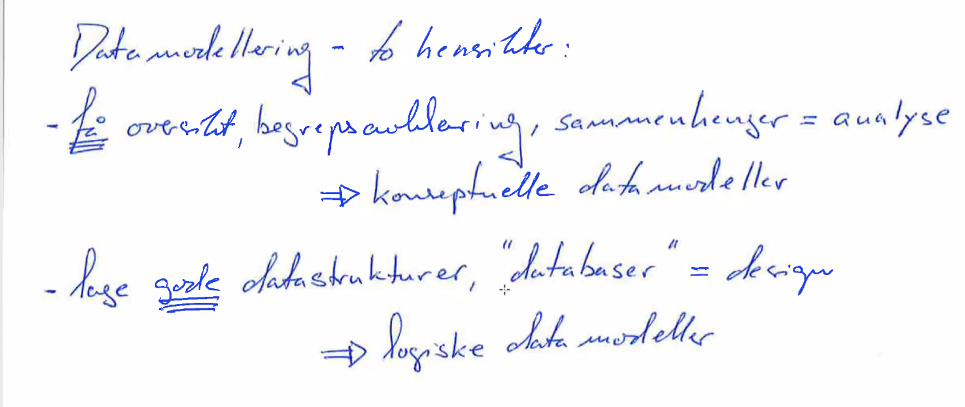 Datamodellering - to hensikter:
- få oversikt, begrepsavklaring, sammenhenger = analyse
⇒ konseptuelle datamodeller
- lage gode datastrukturer, "databaser" = design
⇒ logiske datamodeller